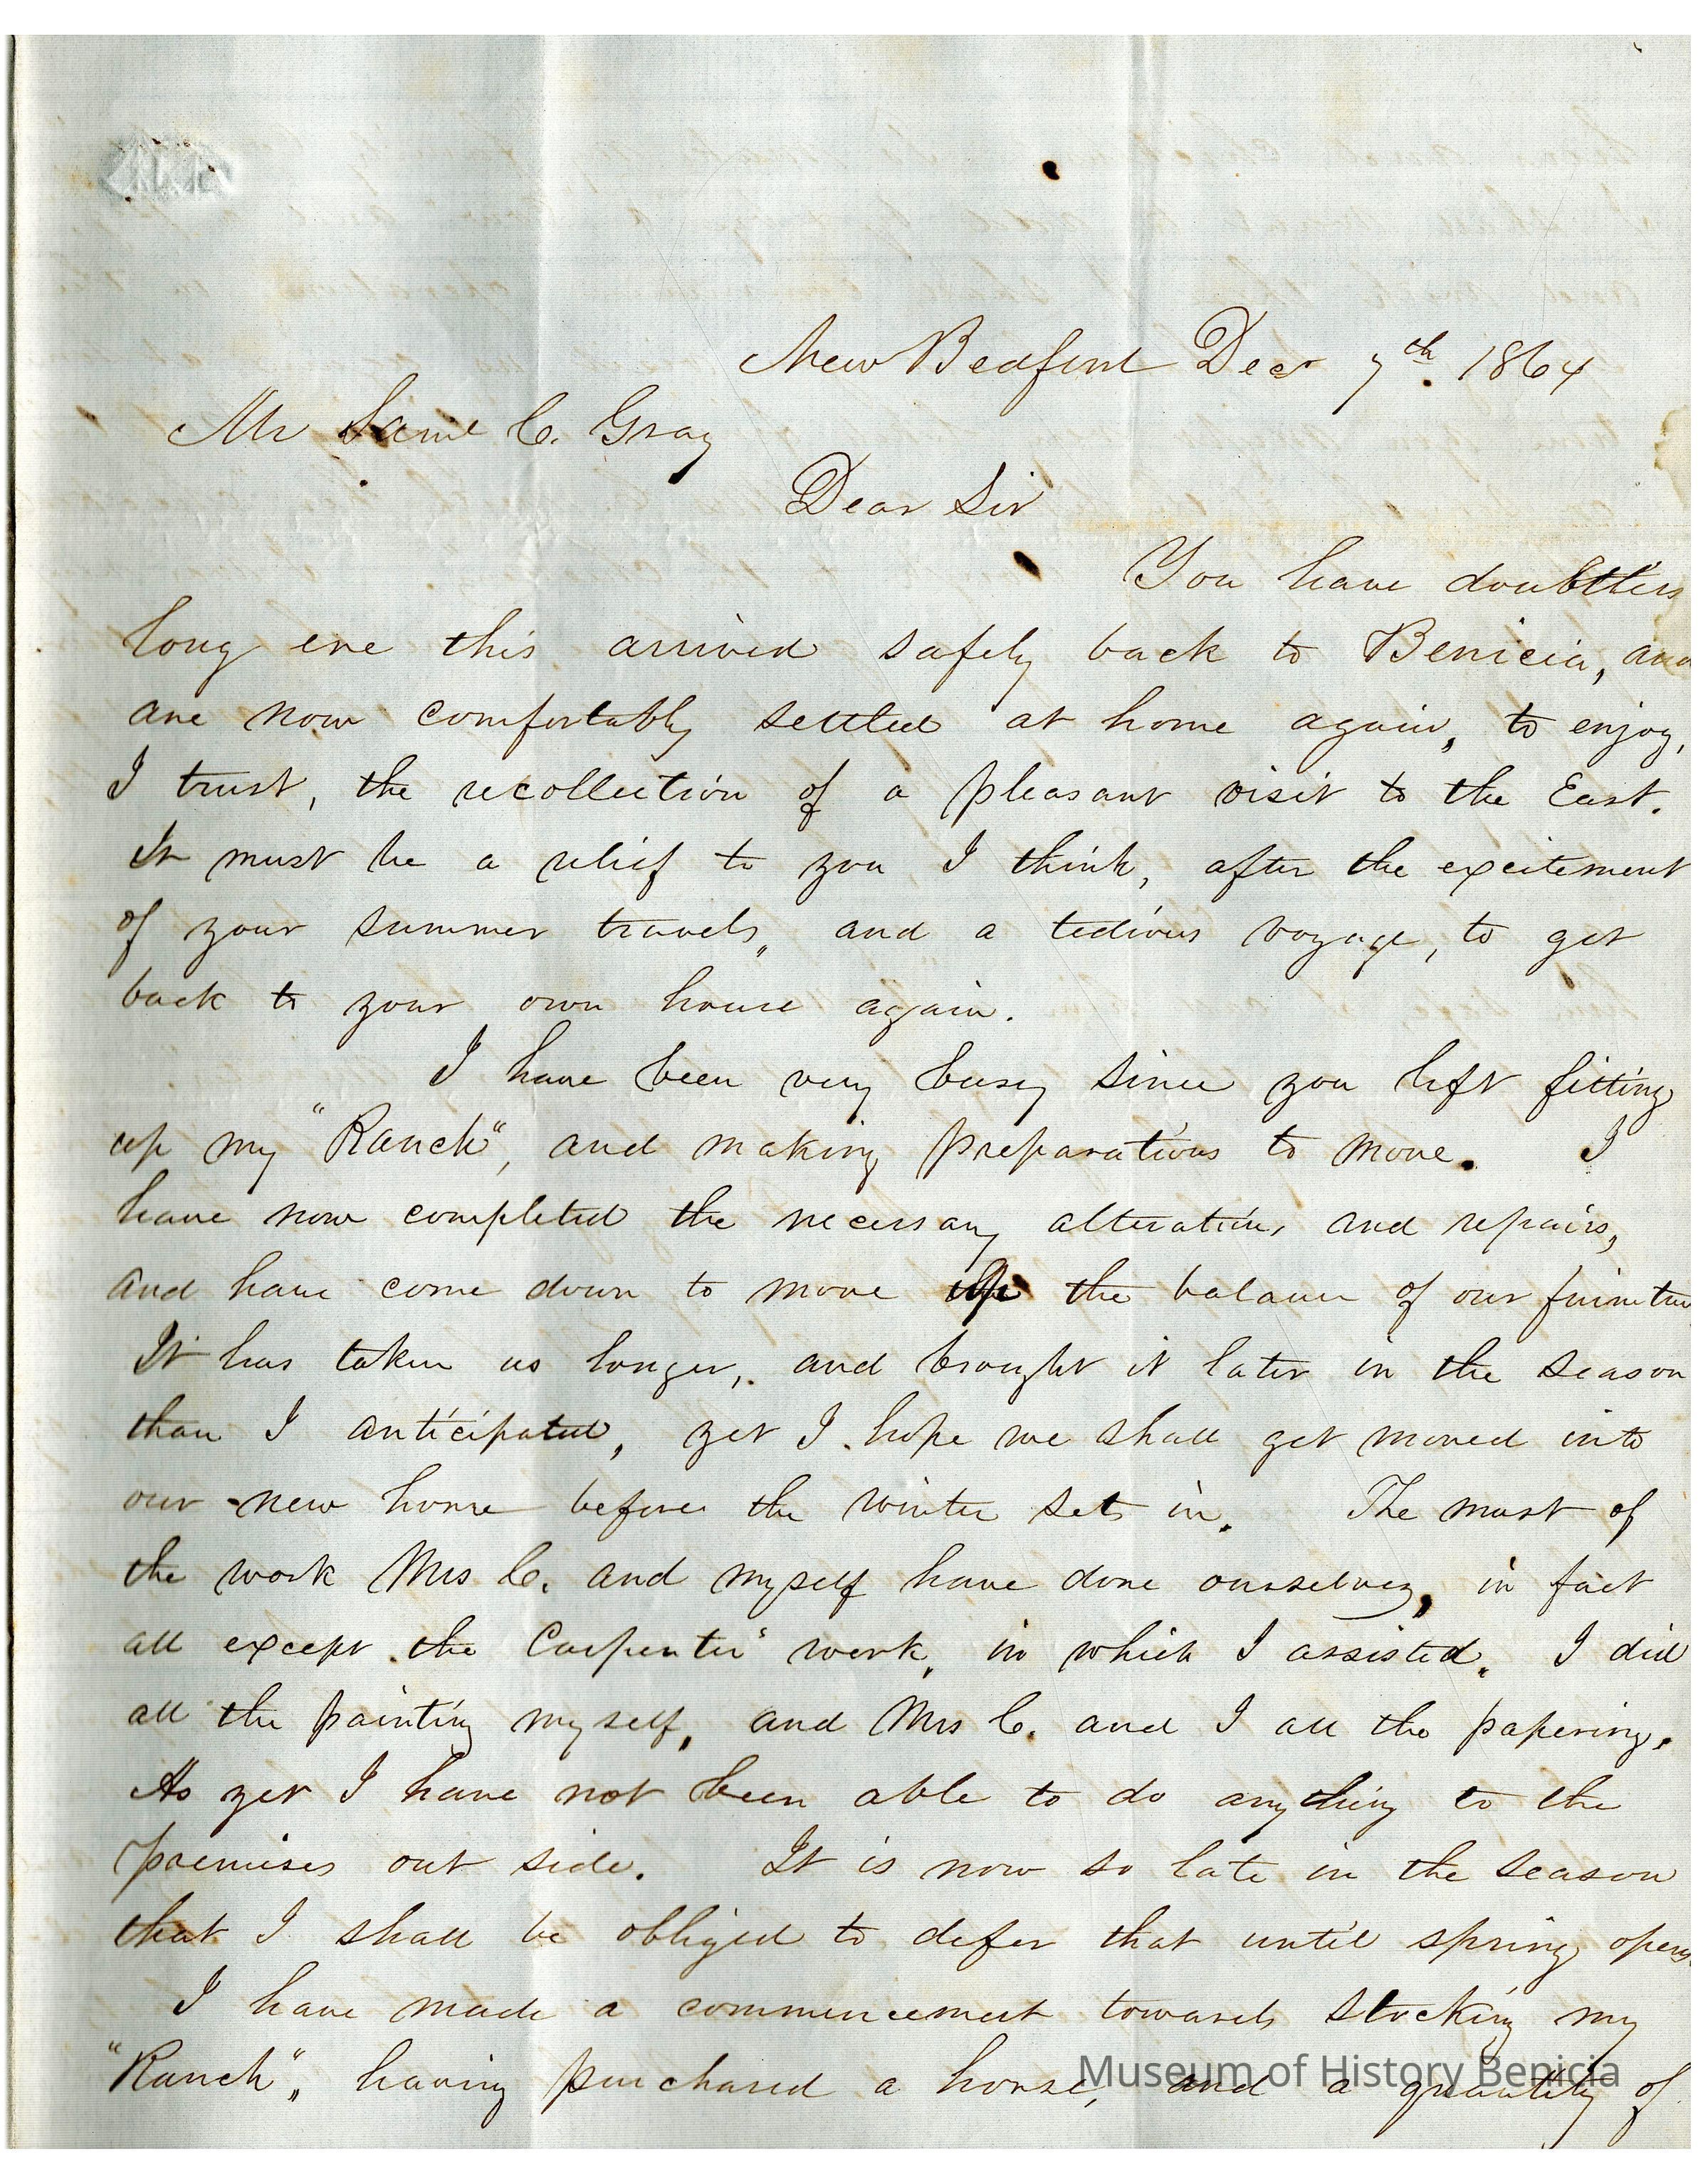 New Bedford Decr 7th. 1864
Mr Saml C. Gray
Dear Sir
You have doubtless
long ere this arrived safely back to Benicia, and
are now comfortably settled at home again, to enjoy,
I trust, the recollection of a pleasant visit to the East.
It must be a relief to you I think, after the excitement
of your summer travels, and a tedious voyage, to get
back to your own house again.
I have been very busy since you left fitting
up my "Ranch", and making preparations to move. I
have now completed the necessary alterations and repairs,
and have come down to move the balance of our furniture
It has taken us longer, and brought it later in the season
than I anticipated, yet I hope we shall get moved into
our new home before the winter sets in. The most of
the work Mrs C. and myself have done ourselves, in fact
all except the Carpenters work, in which I assisted. I did
all the painting myself, and Mrs C. and I all the papering.
As yet I have not been able to do anything to the
premises out side. It is now so late in the season
that I shall be obliged to defer that until spring opens.
I have made a commencement towards stocking my
"Ranch", having purchased a horse, and a quantity of
Museum of History Benicia